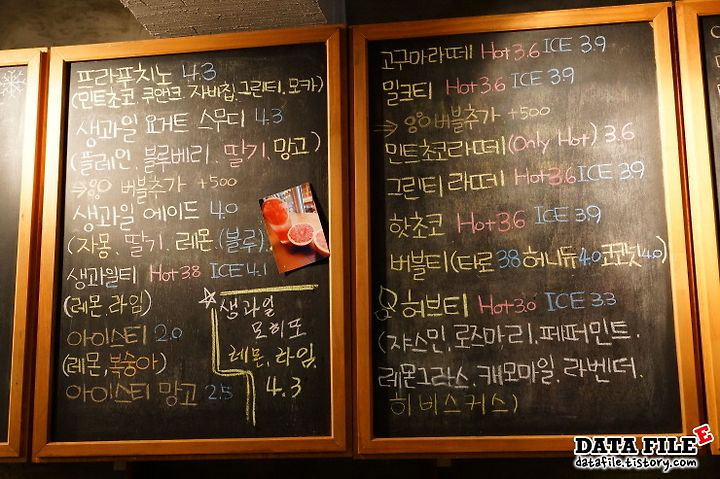 프라푸치노 4.3
(민트초코. 쿠앤크. 자바칩, 그린티, 모카)
생과일 요거트 스무디 4.3
(플레인, 블루베리, 딸기, 망고)
버블추가 +500
생과일 에이드 4.0
(자몽, 딸기, 레몬, (블루)
생과일티 Hot 3.8 ICE 4.1
(레몬, 라임)
아이스티 2.0
(레몬, 복숭아)
아이스티 망고 2.5
☆생과일
모히또
레몬, 라임.
4.3
고구마라떼 Hot 3.6 ICE 3.9
밀크티 Hot 3.6 ICE 3.9
버블추가 +500
민트쵸코라떼(Only Hot) 3.6
그린티 라떼 Hot 3.6 ICE 3.9
핫초코 Hot 3.6 ICE 3.9
버블티(타로 3.8 허니듀 4.0 코코넛 4.0)
허브티 Hot 3.0 ICE 3.3
(쟈스민, 로즈마리, 페퍼민트.
레몬그라스, 캐모마일. 라벤더.
히비스커스)
DATA FILE E
datafile.tistory.com